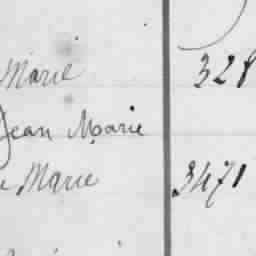 Marie 328
Jean Marie
Marie 3471